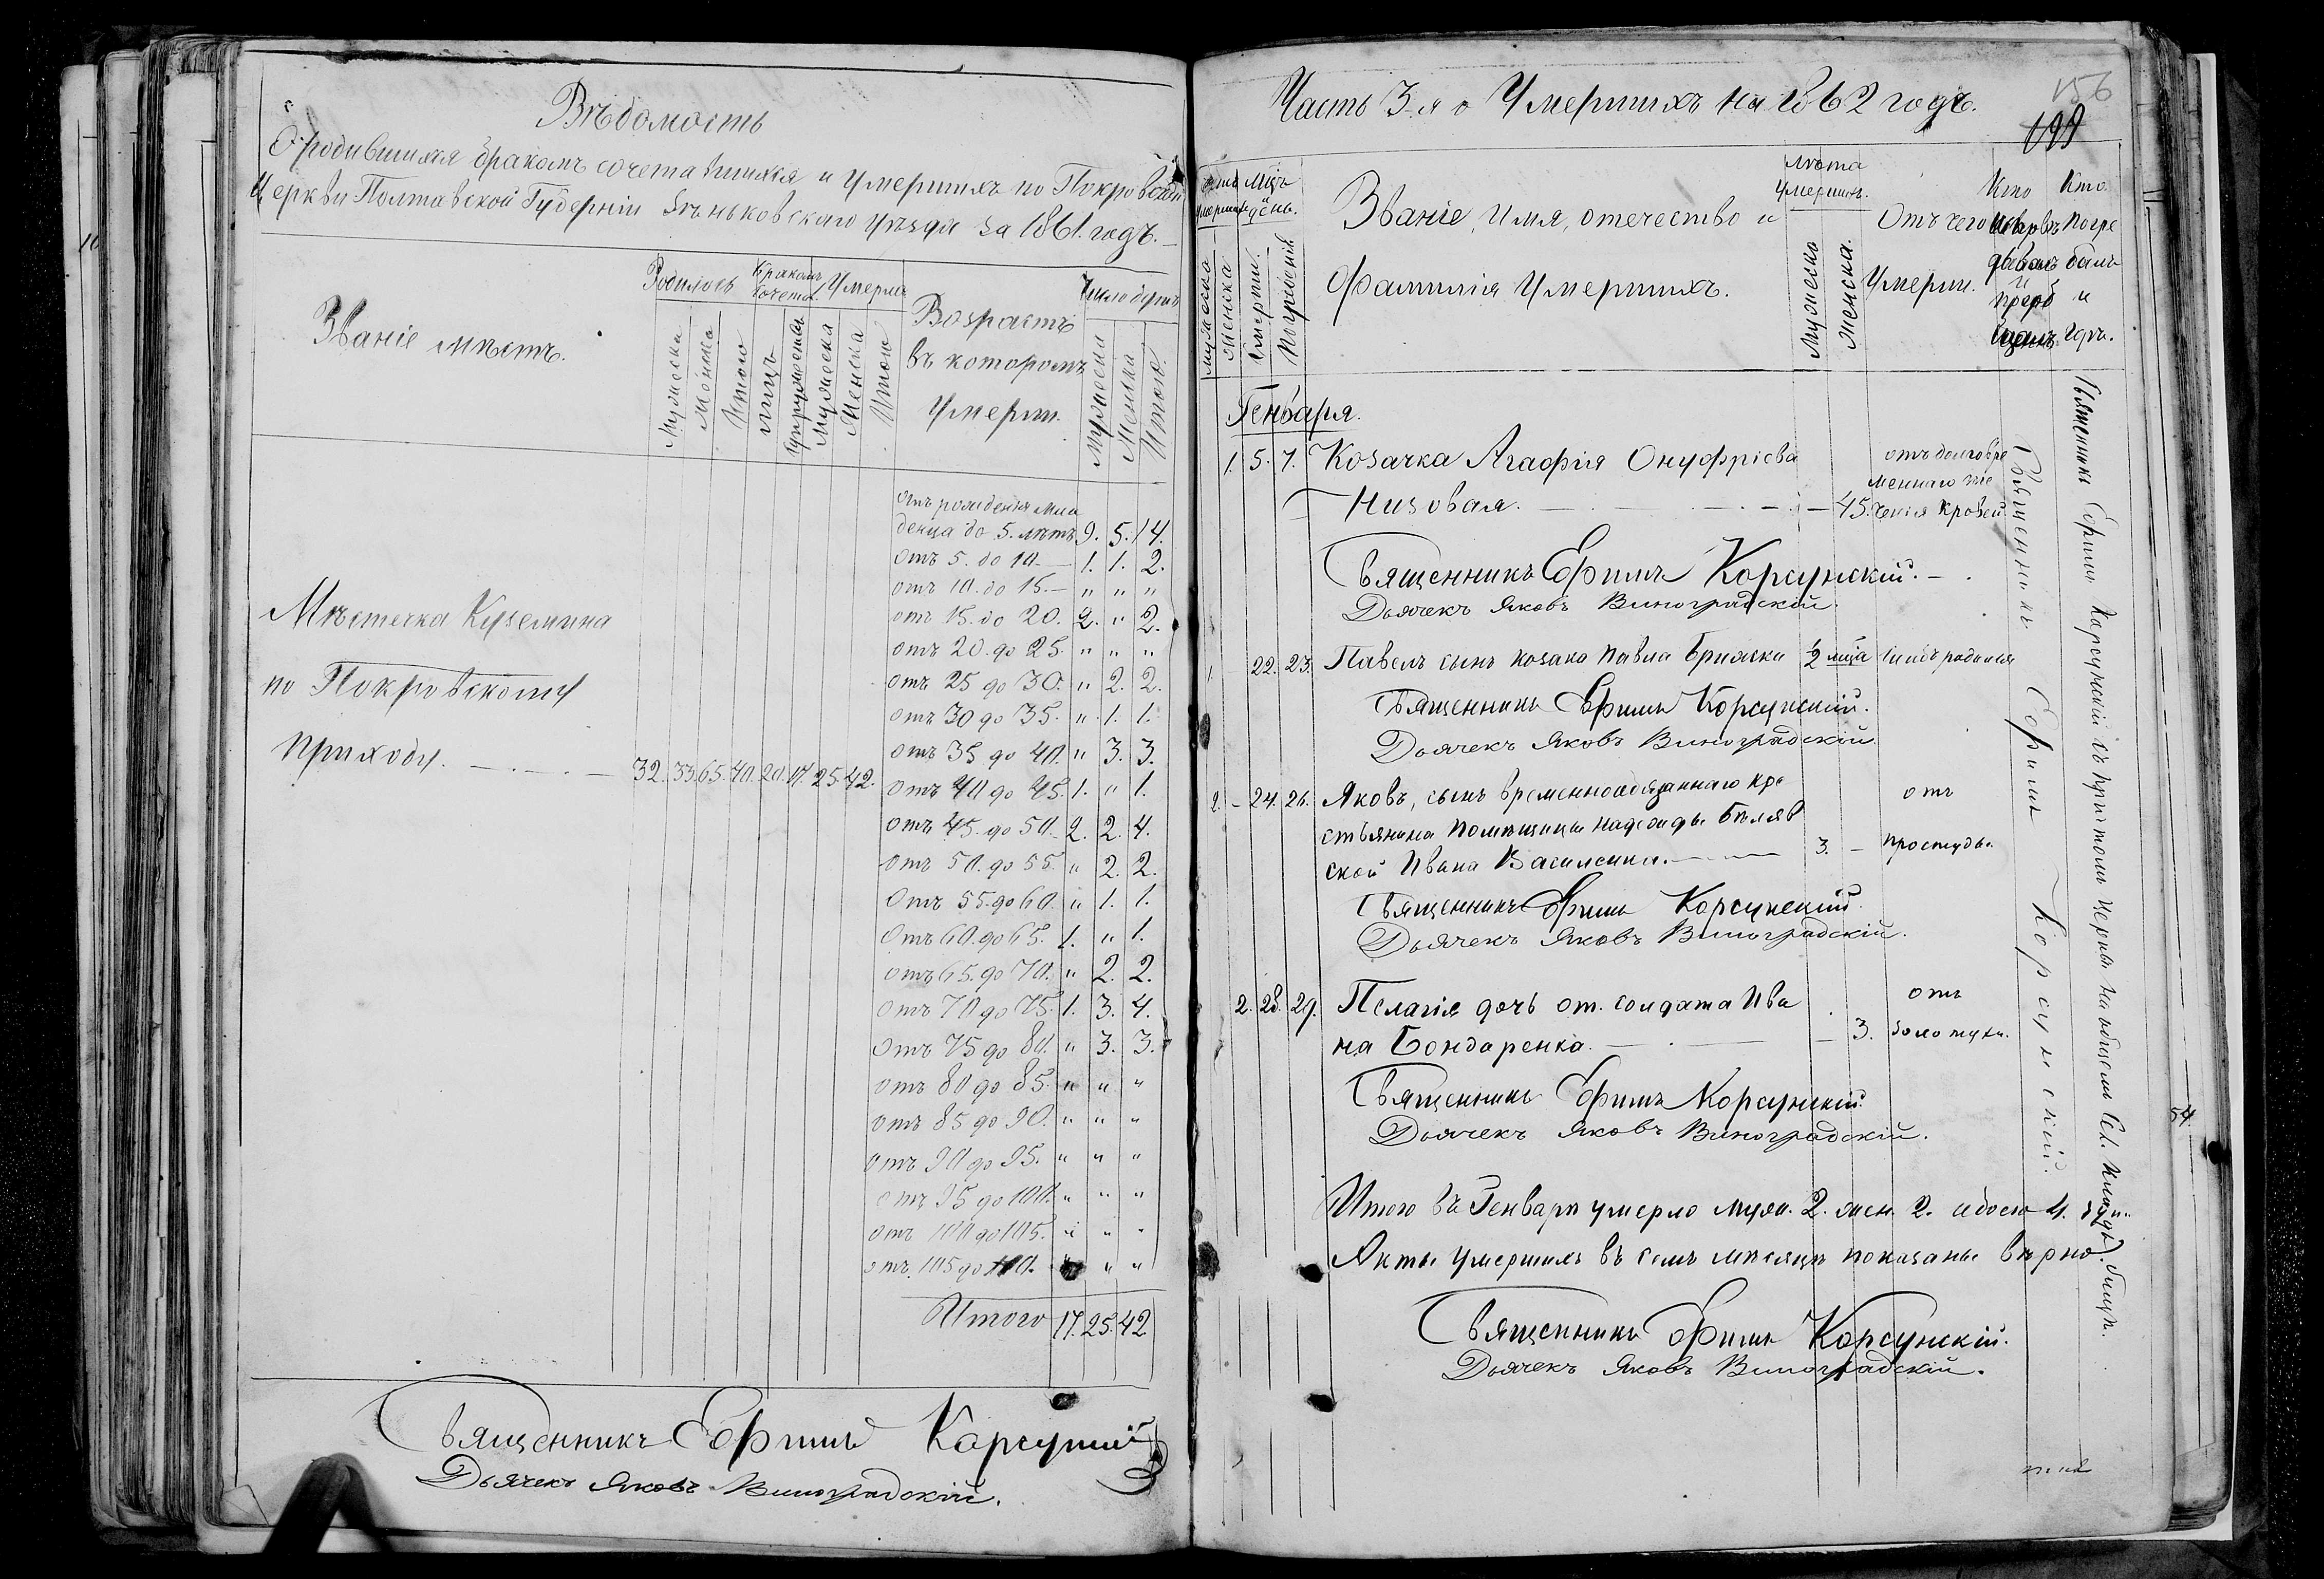 Вѣдомость
О родившихся бракомъ сочетавшихся и умершихъ по Покровской
Церкви Полтавской Губерніи Зѣньковскаго уѣзда за 1861. годъ.
Званіе мѣстъ.
Родилось
Бракомъ сочета.
Умерло
Возрастъ
въ которомъ
умерли.
Число душъ
Мужеска
Женска
Итого
лицъ
супружествъ
Мужеска
Женска
Итого
Мужеска
Женска
Итого.
Мѣстечка Куземина
по Покровскому
приходу. 32. 33. 65. 40. 20. 17. 25. 42.
отъ рожденія мла
денца до 5. лѣтъ 9. 5. 14.
отъ 5. до 10. — 1. 1. 2.
отъ 10. до 15. — " " "
отъ 15. до 20. 2. " 2.
отъ 20. до 25. " " "
отъ 25 до 30. " 2. 2.
отъ 30 до 35. " 1. 1.
отъ 35 до 40. " 3. 3.
отъ 40 до 45. 1. " 1.
отъ 45. до 50. 2. 2. 4.
отъ 50. до 55. " 2. 2.
отъ 55. до 60. " 1. 1.
отъ 60. до 65. 1. " 1.
отъ 65. до 70. " 2. 2.
отъ 70 до 75. 1. 3. 4.
отъ 75 до 80. " 3. 3.
отъ 80 до 85. " " "
отъ 85 до 90. " " "
отъ 90 до 95. " " "
отъ 95 до 100. " " "
отъ 100 до 105. " " "
отъ 105 до 110. " "
Итого 17. 25. 42
Священникъ Ефимъ Корсунскій
Дьячекъ Яковъ Виноградскій.
156
Часть 3-я о Умершихъ на 1862 годъ.
мѣсяцъ
день.
Мужеска
Женска
Смерти.
Погребенія
Званіе, имя, отечество и
Фамилія Умершихъ.
Лѣта
умершихъ.
Мужеска
Женска.
Отъ чего
Умерли.
Кто
Кто
погре
балъ
и
гдѣ.
Генваря.
1. 5. 7. Козачка Агафія Онуфріева
Низовая. — 45.
отъ долговре
меннаго те
ченія кровей
Священникъ Ефимъ Корсунскій.
Дьячекъ Яковъ Виноградскій.
1. 22. 23. Павелъ сынъ козака Павла 1/2 мца
Священникъ Ефимъ Корсунскій.
Дьячекъ Яковъ Виноградскій
2. – 24. 26. Яковъ, сынъ временнообязаннаго кре
стьянина помѣщицы Надежды Бѣляв
ской Ивана Василенка. — 3. –
отъ
простуды.
Священникъ Ефимъ Корсунскій
Дьячекъ Яковъ Виноградскій.
2. 28. 29. Пелагія дочь от. солдата Ива
на Бондаренка. — 3.
отъ
золотухи.
Священникъ Ефимъ Корсунскій
Дьячекъ Яковъ Виноградскій.
Священникъ Ефимъ Корсунскій.
Священникъ Ефимъ Корсунскій съ причтомъ церкви на общемъ Сел. кладбищѣ.
Итого въ Генварѣ умерло муж. 2. жен. 2. обоего 4. душ.
Акты умершихъ въ семъ мѣсяцѣ показаны вѣрно
Священникъ Ефимъ Корсунскій.
Дьячекъ Яковъ Виноградскій.
54.